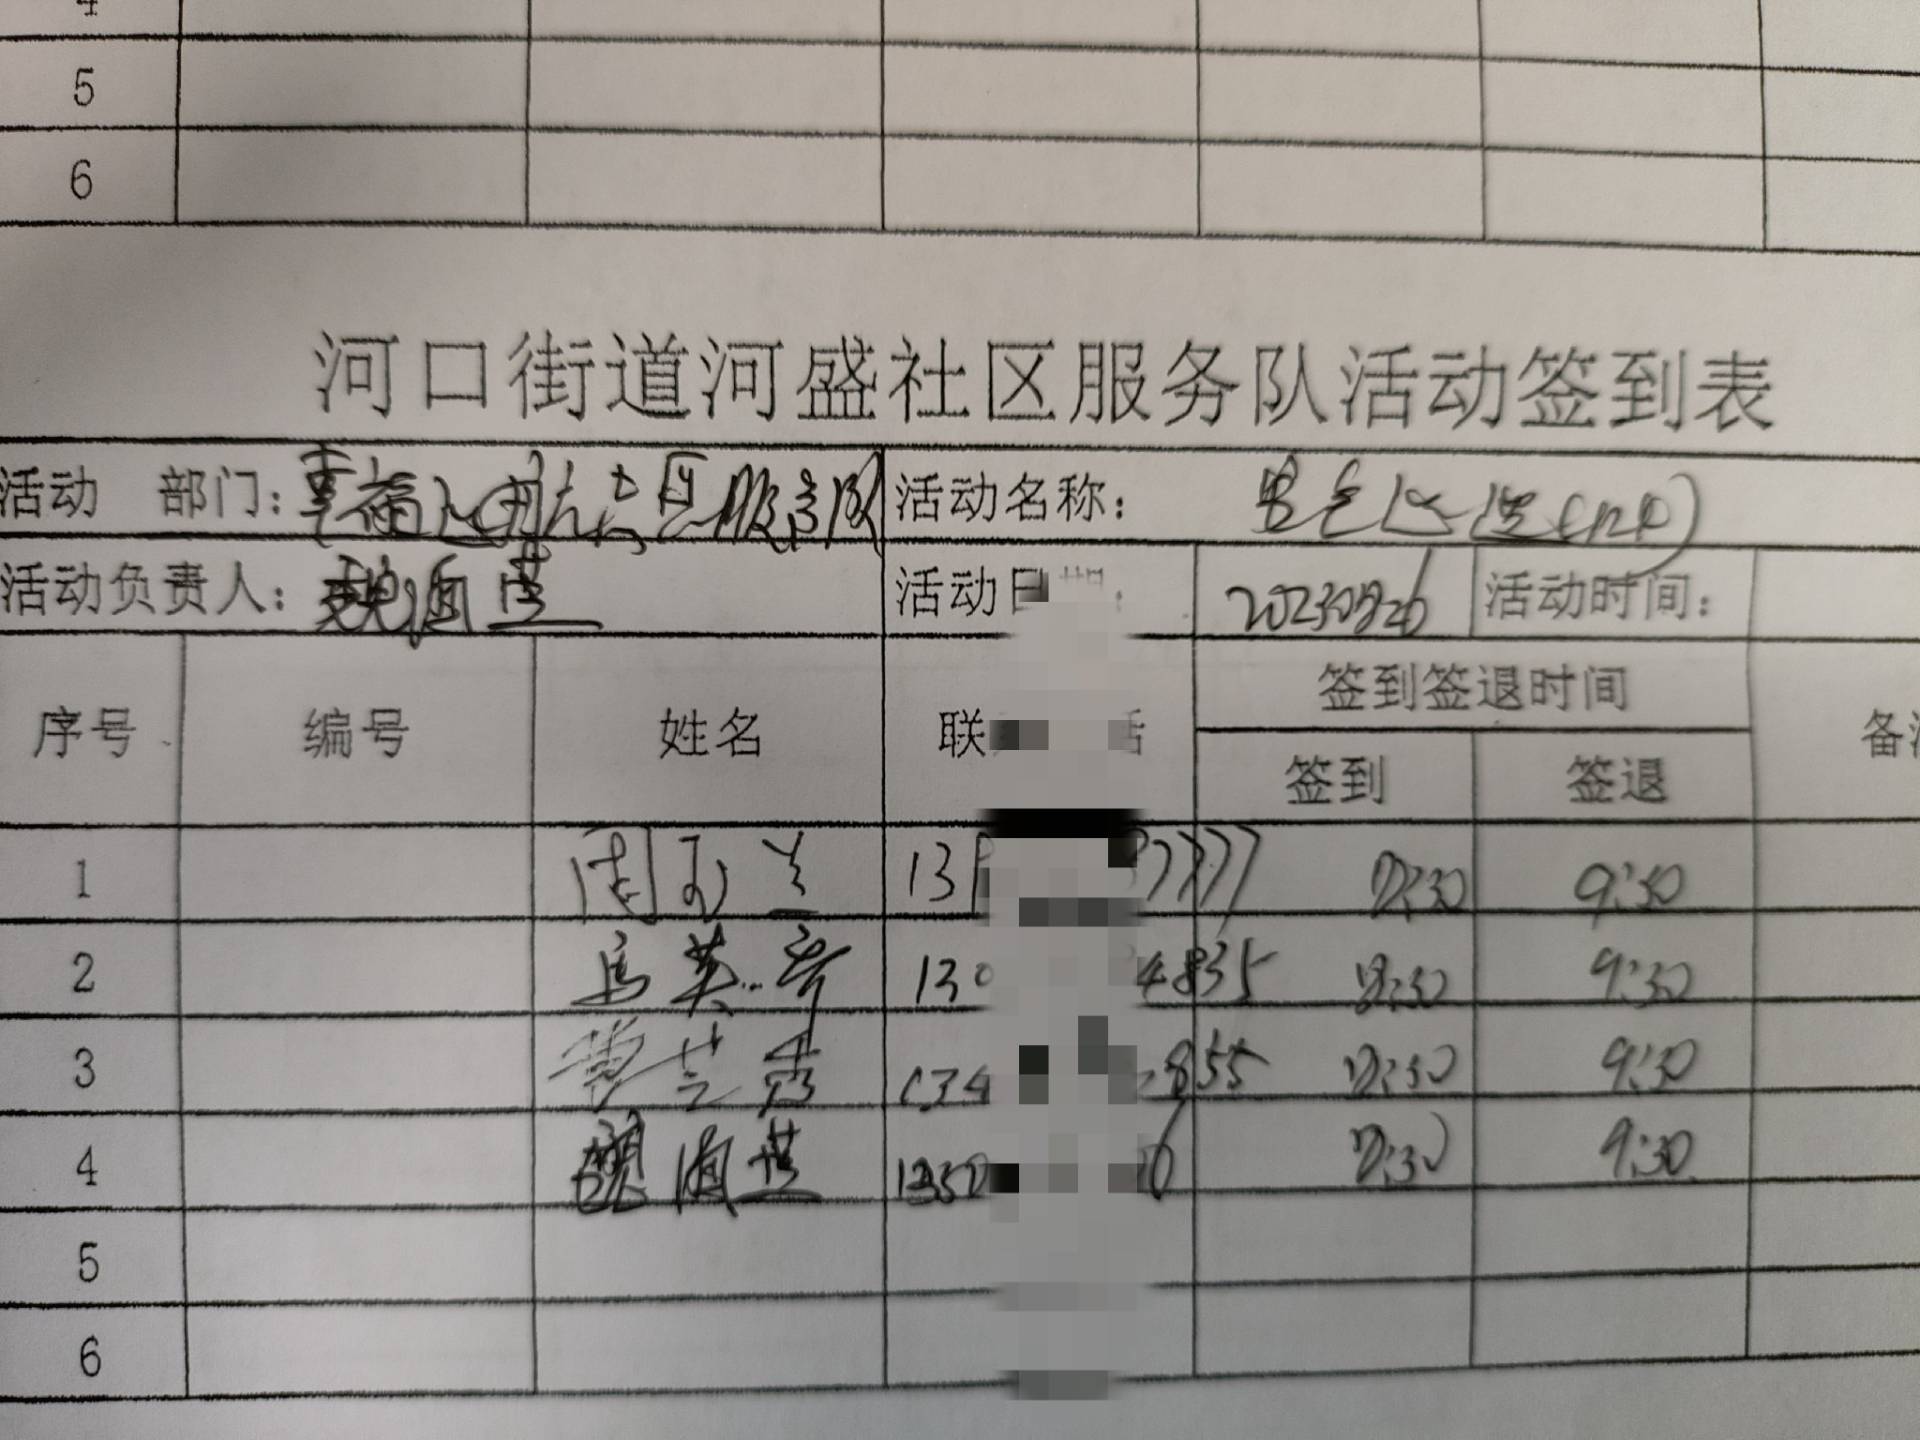 5
6
河口街道河盛社区服务队活动签到表
活动 部门：幸福 社区服务队 活动名称：
活动负责人：魏海莲 活动日期： 20230826 活动时间：
序号 编号 姓名 联 话 签到签退时间
签到 签退
1 周玉兰 13 7777 8:30 9:30
2 马英 130 4835 8:30 9:30
3 曹芝秀 134 855 8:30 9:30
4 魏海莲 1350 6 8:30 9:30
5
6